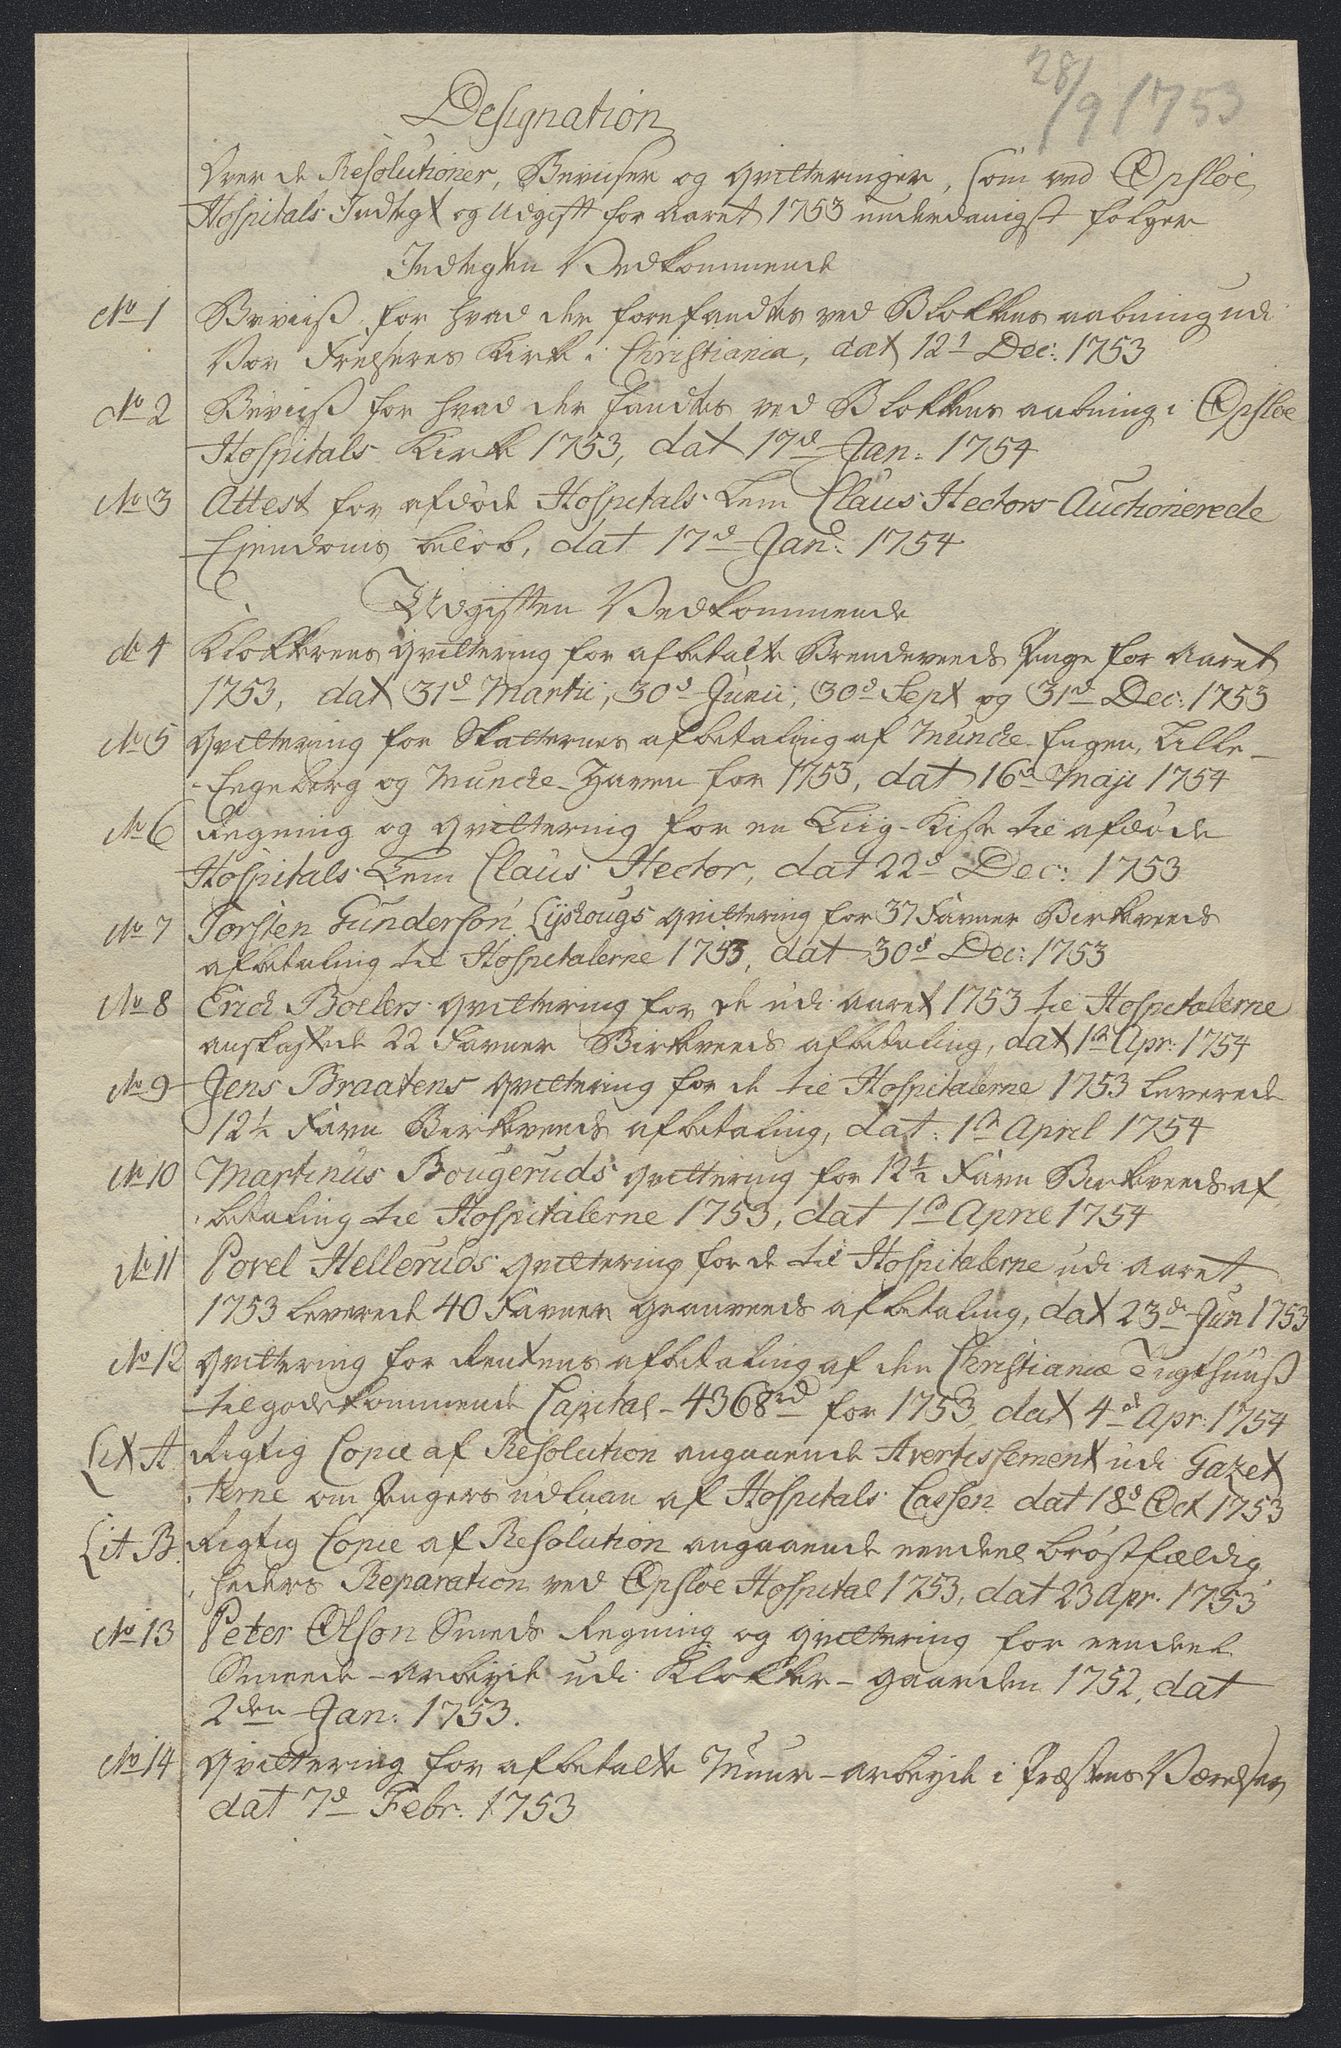 28/9 1753
Designation
Over de Resolutioner, Beviiser og Qvitteringer, som ved Opsloe
Hospitals Indtegt og Udgift for Aaret 1753 underdanigst følger
Indtegten Vedkommende
No 1 Beviiß for hvad der forefandtes ved Blokkens aabning udi
Vor Frelseres Kirke i Christiania, dat 12te Dec: 1753
No 2 Beviiß for hvad der fandtes ved Blokkens aabning i Opsloe
Hospitals Kirke 1753, dat 17d Jan: 1754
No 3 Attest for afdøde Hospitals-Lem Claus Hectors Auctionerede
Ejendoms beløb, dat 17d Jan: 1754
Udgiften Vedkommende
No 4 Klokkerens Qvittering for afbetalte Brendeveeds Penge for Aaret
1753, dat 31d Martii, 30d Junii, 30d Sept og 31d Dec: 1753
No 5 Qvittering for Skatternes afbetaling af Muncke-Engen, Lille-
Engeberg og Muncke-Haven for 1753, dat 16d Maji 1754
No 6 Regning og Qvittering for en Liig-Kiste til afdøde
Hospitals-Lem Claus Hector, dat 22d Dec: 1753
No 7 Torsten Gunderson Lijskougs Qvittering for 37 Favner Birkeveeds
afbetaling til Hospitalerne 1753, dat 30d Dec: 1753
No 8 Erick Boelers Qvittering for de udi Aaret 1753 til Hospitalerne
anskaffede 22 Favner Birkeveeds afbetaling, dat 1ste Apr: 1754
No 9 Jens Braatens Qvittering for de til Hospitalerne 1753 leverede
12½ Favn Birkeveeds afbetaling, dat: 1ste April 1754
No 10 Martinus Bougeruds Qvittering for 12½ Favn Birkeveeds af-
betaling til Hospitalerne 1753, dat 1ste April 1754
No 11 Povel Helleruds Qvittering for de til Hospitalerne udi Aaret
1753 leverede 40 Favner Granveeds afbetaling, dat 23de Jun 1753
No 12 Qvittering for Rentens afbetaling af den Christiania Tugthuuß
tilgodekommende Capital - 4368rd for 1753 dat 4d Apr: 1754
Lit A Rigtig Copie af Resolution angaaende Avertissement udi Gazet
terne om Pengers udlaan af Hospitals Cassen dat 18d Oct 1753
Lit B. Rigtig Copie af Resolution angaaende eendeel brøstfældig
heders Reparation ved Opsloe Hospital 1753, dat 23 Apr. 1753
No 13 Peter Olson Smeds Regning og Qvittering for eendeel
Smede-arbeyde udi Klokker-gaarden 1752, dat
2den Jan: 1753.
No 14 Qvittering for afbetalte Muur-arbeyde i Præstens Værelser
dat 7d Febr. 1753